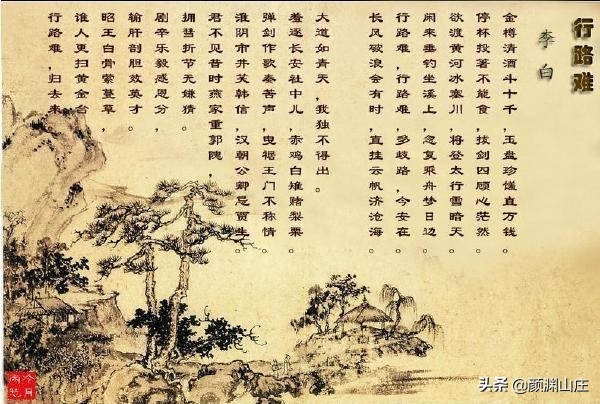 行路难
李白
金樽清酒斗十千，玉盘珍馐直万钱。
停杯投箸不能食，拔剑四顾心茫然。
欲渡黄河冰塞川，将登太行雪暗天。
闲来垂钓坐溪上，忽复乘舟梦日边。
行路难，行路难，多歧路，今安在
长风破浪会有时，直挂云帆济沧海。
大道如青天，我独不得出。
羞逐长安社中儿，赤鸡白雉赌梨栗。
弹剑作歌奏苦声，曳裾王门不称情
淮阴市井笑韩信，汉朝公卿忌贾生。
君不见昔时燕家重郭隗，
拥彗折节无嫌猜。
剧辛乐毅感恩分，
输肝剖胆效英才。
昭王白骨萦蔓草，
谁人更扫黄金台
行路难，归去来
头条 @颜渊山庄